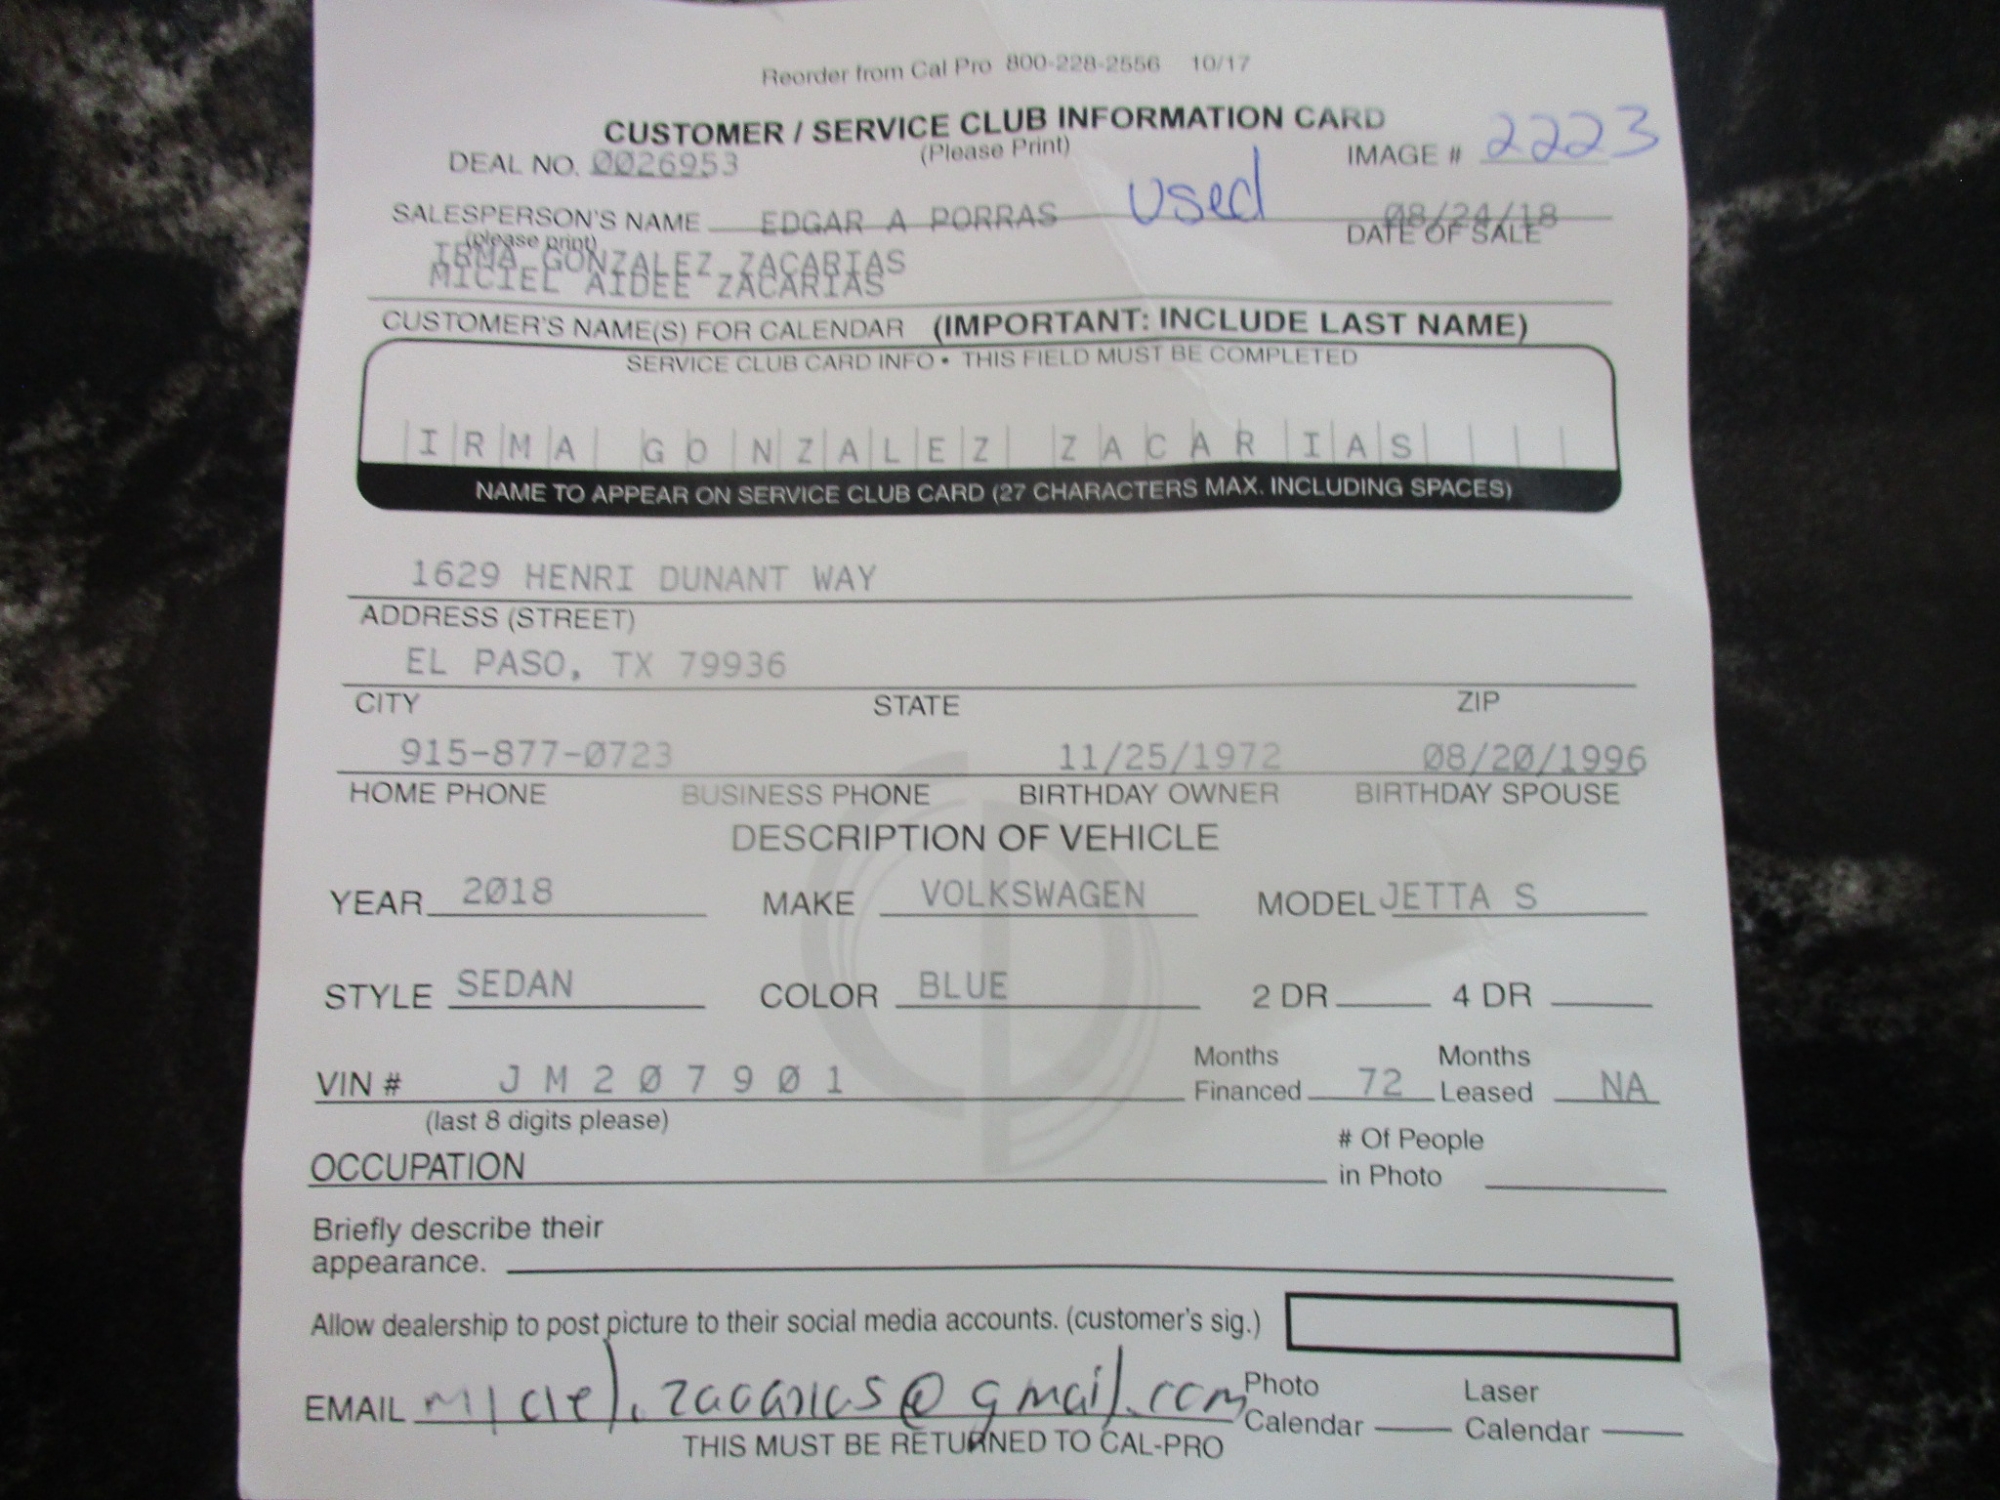 Reorder from Cal Pro 800-228-2556 10/17
CUSTOMER / SERVICE CLUB INFORMATION CARD
(Please Print)
DEAL NO. 0026953
IMAGE # 2223
SALESPERSON'S NAME EDGAR A PORRAS used 08/24/18
(please print) DATE OF SALE
IRMA GONZALEZ ZACARIAS
MICIEL AIDEE ZACARIAS
CUSTOMER'S NAME(S) FOR CALENDAR (IMPORTANT: INCLUDE LAST NAME)
SERVICE CLUB CARD INFO • THIS FIELD MUST BE COMPLETED
IRMA GONZALEZ ZACARIAS
NAME TO APPEAR ON SERVICE CLUB CARD (27 CHARACTERS MAX. INCLUDING SPACES)
1629 HENRI DUNANT WAY
ADDRESS (STREET)
EL PASO, TX 79936
CITY STATE ZIP
915-877-0723 11/25/1972 08/20/1996
HOME PHONE BUSINESS PHONE BIRTHDAY OWNER BIRTHDAY SPOUSE
DESCRIPTION OF VEHICLE
YEAR 2018 MAKE VOLKSWAGEN MODEL JETTA S
STYLE SEDAN COLOR BLUE 2 DR 4 DR
Months Months
VIN # JM207901 Financed 72 Leased NA
(last 8 digits please)
# Of People
OCCUPATION in Photo
Briefly describe their
appearance.
Allow dealership to post picture to their social media accounts. (customer's sig.)
Photo Laser
EMAIL miciel.zacarias@gmail.com Calendar Calendar
THIS MUST BE RETURNED TO CAL-PRO